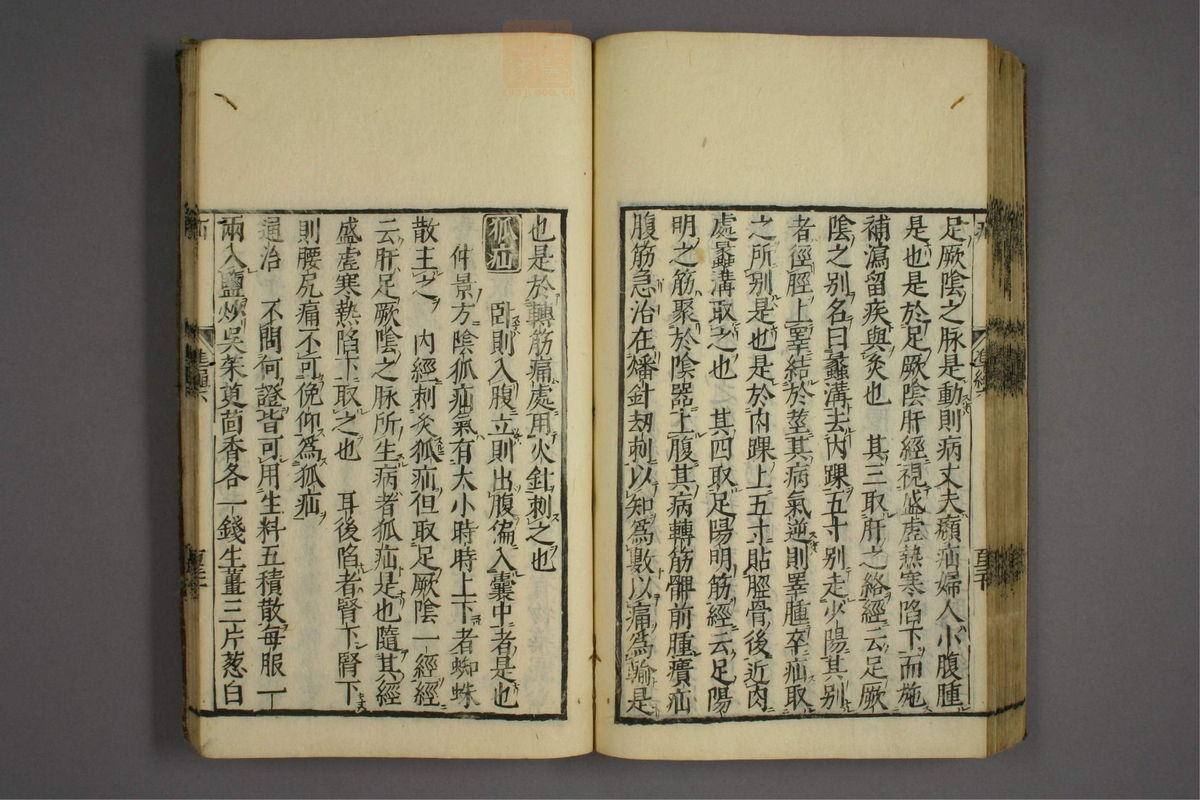 足厥陰之脉是動則病丈夫㿗疝婦人小腹腫
是也是於足厥陰肝經視盛虛熱寒陷下而施
補瀉留疾與灸也　其三取肝之絡經云足厥
陰之別名曰蠡溝去內踝五寸別走少陽其別
者徑脛上睪結於莖其病氣逆則睪腫卒疝取
之所別是也是於內踝上五寸貼脛骨後近肉
處蠡溝取之也　其四取足陽明筋經云足陽
明之筋聚於陰器上腹其病轉筋髀前腫㿉疝
腹筋急治在燔針劫刺以知爲數以痛爲輸是
也是於轉筋痛處用火針刺之也
狐疝　臥則入腹立則出腹偏入囊中者是也
仲景方陰狐疝氣有大小時時上下者蜘蛛
散主之　內經刺灸狐疝但取足厥陰一經經
云肝足厥陰之脉所生病者狐疝是也隨其經
盛虛寒熱陷下取之也　耳後陷者腎下腎下
則腰尻痛不可俛仰爲狐疝
通治　不問何證皆可用生料五積散每服一
兩入鹽炒吳茱萸茴香各一錢生薑三片葱白